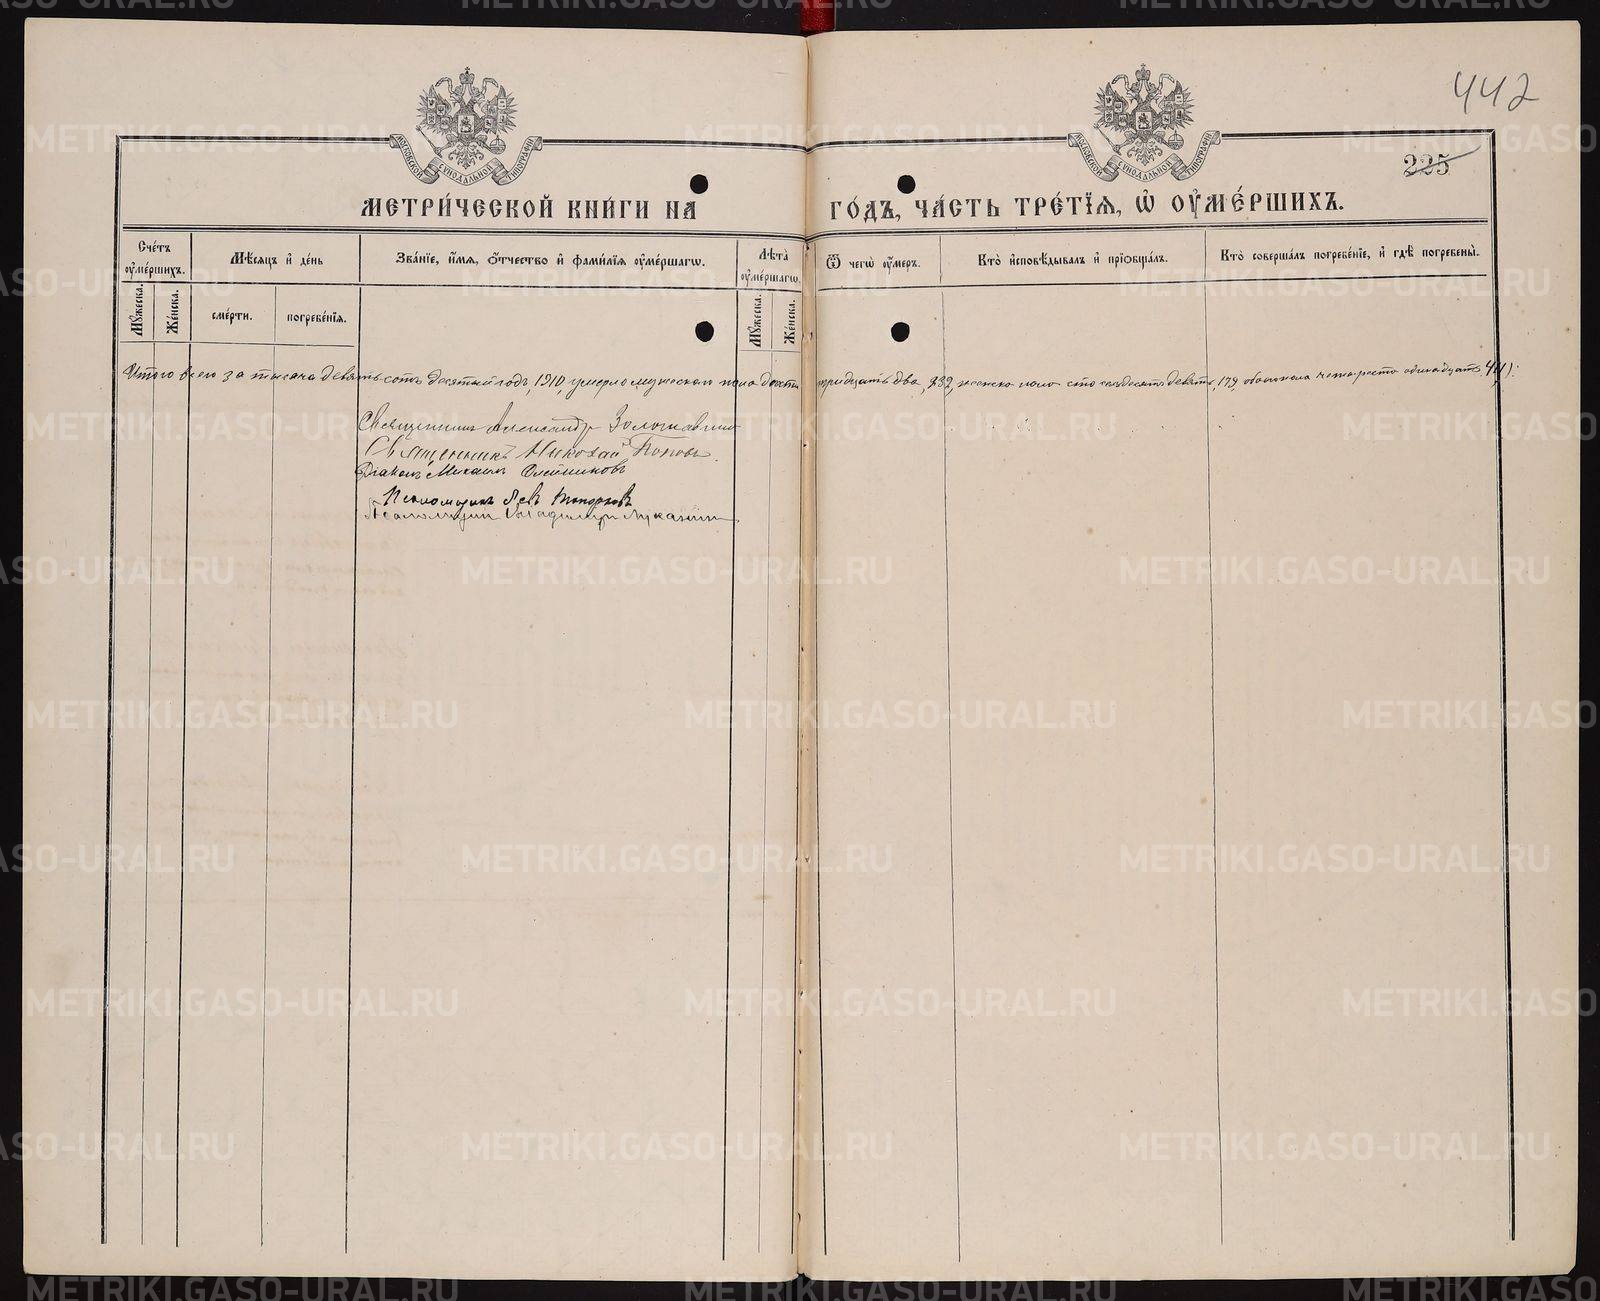 442
225
МОСКОВСКОЙ СѴНОДАЛЬНОЙ ТИПОГРАФІИ
МОСКОВСКОЙ СѴНОДАЛЬНОЙ ТИПОГРАФІИ
МЕТРИ́ЧЕСКОЙ КНИ́ГИ НА ГО́ДЪ, ЧА́СТЬ ТРЕ́ТІѦ, Ѡ҆ ОУ҆МЕ́РШИХЪ.
Сче́тъ оу҆ме́ршихъ.
Мѣ́сѧцъ и҆ де́нь
Зва́нїе, и҆́мѧ, ѻ҆́тчество и҆ фами́лїѧ оу҆ме́ршагѡ.
Лѣ́та оу҆ме́ршагѡ.
Ѿ чегѡ̀ оу҆́меръ.
Кто̀ и҆сповѣ́дывалъ и҆ прїѡбща́лъ.
Кто̀ соверша́лъ погребе́нїе, и҆ гдѣ̀ погребены̀.
Мꙋ́жеска.
Же́нска.
сме́рти.
погребе́нїѧ.
Мꙋ́жеска.
Же́нска.
Итого всего за тысяча девятьсотъ десятый годъ, 1910, умерло мужескаго пола двѣсти тридцать два, 232, женска пола сто семьдесятъ девять, 179, обоего пола четыреста одинадцать 411).
Священникъ Александръ
Священникъ Николай Поповъ
Діаконъ Михаилъ Олейниковъ
Псаломщикъ Левъ Топорковъ
Псаломщикъ Владимиръ Луканинъ
METRIKI.GASO-URAL.RU